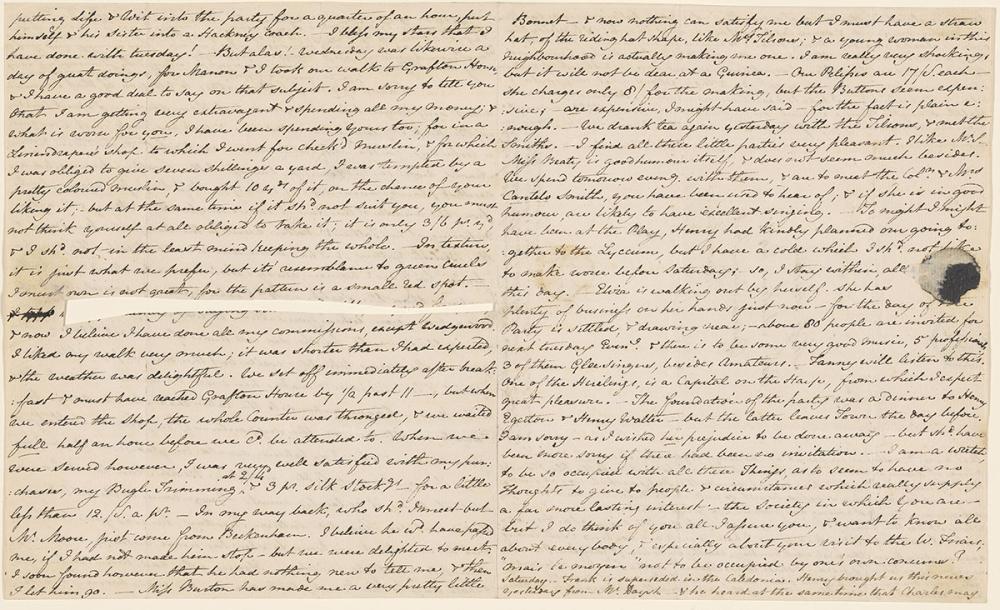 putting life & Wit into the party for a quarter of an hour, put
himself & his Sister into a Hackney coach. — I bless my stars that I
have done with tuesday! — But alas! Wednesday was likewise a
day of great doings, for Manon & I took our walk to Grafton House,
& I have a good deal to say on that subject. I am sorry to tell you
that I am getting very extravagant & spending all my money; &
what is worse for you, I have been spending yours too; for in a
Linendraper's shop to which I went for check'd muslin, & for which
I was obliged to give seven shillings a yard, I was tempted by a
pretty coloured muslin, & bought 10 yds of it, on the chance of your
liking it; — but at the same time if it shd. not suit you, you must
not think yourself at all obliged to take it; it is only 3/6 pr. yd
& I shd. not in the least mind keeping the whole. — In texture,
it is just what we prefer, but its' resemblance to green cruels
I must own is not great, for the pattern is a small red spot. —
& now I beleive I have done all my commissions, except Wedgwood.
I liked my walk very much; it was shorter than I had expected,
& the weather was delightful. We set off immediately after break:
:fast & must have reached Grafton House by 1/2 past 11 —, but when
we entered the Shop, the whole Counter was thronged, & we waited
full half an hour before we cd. be attended to. When we
were served however, I was very well satisfied with my pur:
:chases, my Bugle Trimming at 2/4d & 3 pr. silk Stockgs. for a little
less than 12./S. a pr. — In my way back, who shd. I meet but
Mr. Moore, just come from Beckenham. I beleive he wd. have passed
me, if I had not made him stop — but we were delighted to meet.
I soon found however that he had nothing new to tell me, & then
I let him go. — Miss Burton has made me a very pretty little
Bonnet — & now nothing can satisfy me but I must have a straw
hat, of the riding hat shape, like Mrs. Tilson's; & a young woman in this
neighbourhood is actually making me one. I am really very shocking;
but it will not be dear at a Guinea. — Our Pelisses are 17/S. each —
she charges only 8/ for the making, but the Buttons seem expen:
:sive; — are expensive, I might have said — for the fact is plain e:
:nough. — We drank tea again yesterday with the Tilsons, & met the
Smiths. — I find all these little parties very pleasant. I like Mr. S.
Miss Beaty is goodhumour itself, & does not seem much besides.
We spend tomorrow eveng. with them, & are to meet the Coln. & Mrs
Cantelo Smith, you have been used to hear of; & if she is in good
humour, are likely to have excellent singing. — To night I might
have been at the Play, Henry had kindly planned our going to:
:gether to the Lyceum, but I have a cold which I shd. not like
to make worse before Saturday; so, I stay within, all
this day. — Eliza is walking out by herself. She has
plenty of business on her hands just now — for the day of the
Party is settled, & drawing near; — above 80 people are invited for
next tuesday Eveng. & there is to be some very good music, 5 professionals,
3 of them Glee-singers, besides Amateurs. — Fanny will listen to this.
One of the Hirelings, is a Capital on the Harp, from which I expect
great pleasure. — The foundation of the party was a dinner to Henry
Egerton & Henry Walter — but the latter leaves Town the day before.
I am sorry — as I wished her prejudice to be done away — but shd. have
been more sorry if there had been no invitation. — I am a wretch,
to be so occupied with all these Things, as to seem to have no
Thoughts to give to people & circumstances which really supply
a far more lasting interest — the Society in which you are —
but I do think of you all I assure you, & want to know all
about everybody, & especially about your visit to the W. Friars;
"mais le moyen" not to be occupied by one's own concerns?
Saturday. — Frank is superseded in the Caledonia. Henry brought us this news
yesterday from Mr. Daysh — & he heard at the same time that Charles may